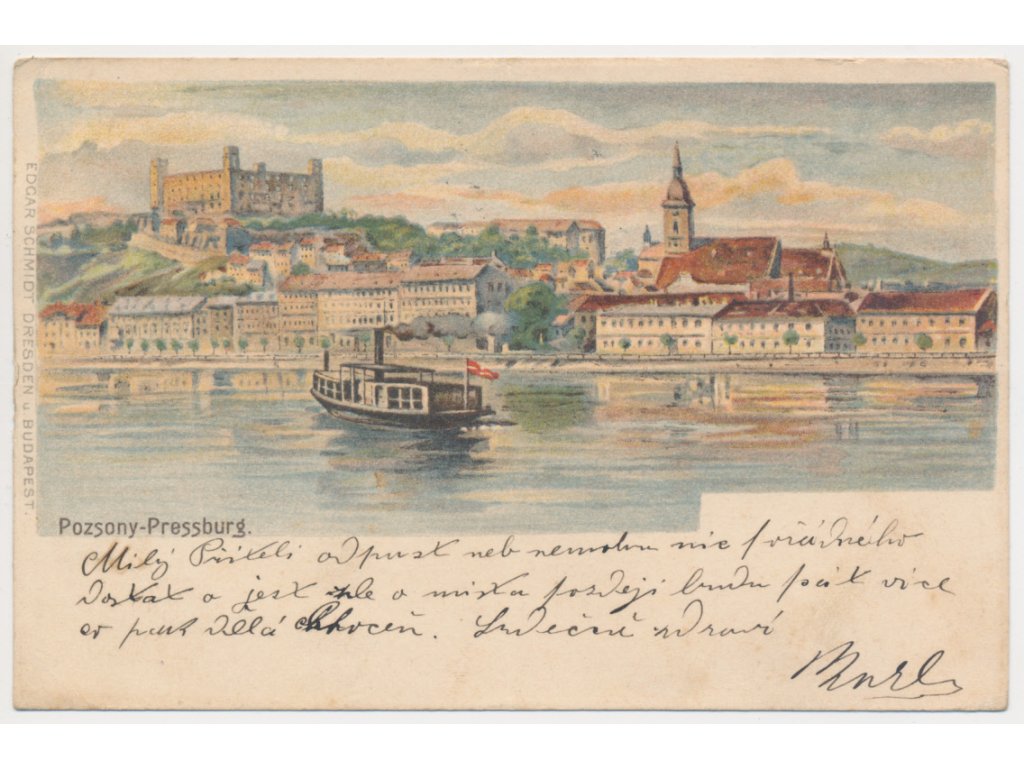 EDGAR SCHMIDT DRESDEN u BUDAPEST.
Pozsony-Pressburg.
Milý Příteli odpust neb nemohu nic pořádného
dostat a jest zle o místa pozdeji budu psát více
co pak dělá Choceň. Srdečně zdraví